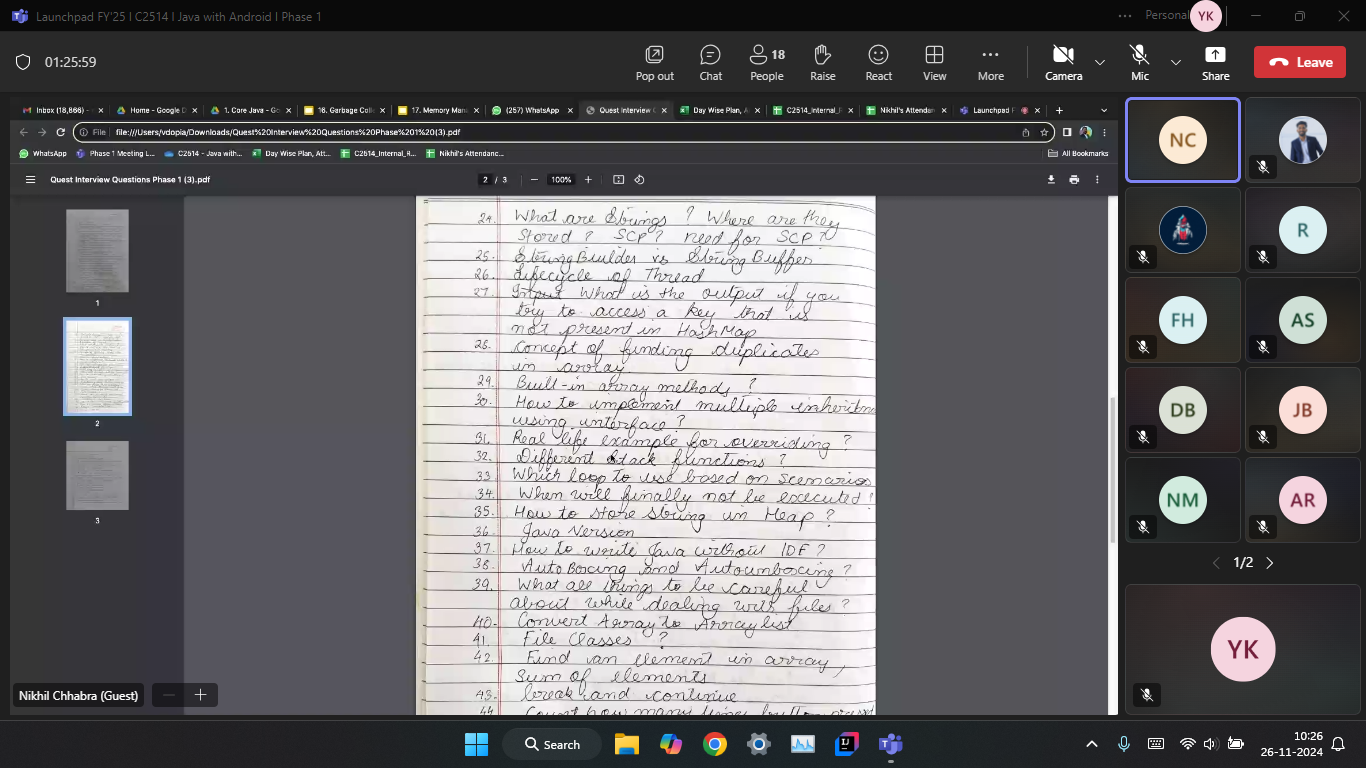 Launchpad FY'25 | C2514 | Java with Android | Phase 1
Personal
YK
01:25:59
Pop out
Chat
18
People
Raise
React
View
More
Camera
Mic
Share
Leave
Inbox (18,866) -
Home - Google D
1. Core Java - Go
16. Garbage Coll
17. Memory Man
(257) WhatsApp
Quest Interview
Day Wise Plan, A
C2514_Internal_F
Nikhil's Attendan
Launchpad F
File
file:///Users/vdopia/Downloads/Quest%20Interview%20Questions%20Phase%201%20(3).pdf
WhatsApp
Phase 1 Meeting L...
C2514 - Java with...
Day Wise Plan, Att...
C2514_Internal_R...
Nikhil's Attendanc...
All Bookmarks
Quest Interview Questions Phase 1 (3).pdf
2 / 3
100%
1
2
3
24. What are Strings ? Where are they
Stored ? SCP ? need for SCP
25. String Builder vs String Buffer
26. Lifecycle of Thread
27. Input What is the output if you
try to access a key that is
not present in HashMap
28. Concept of finding duplicates
in array
29. Built-in array methods ?
30. How to implement multiple inheritan
using interface ?
31. Real life example for overriding ?
32. Different stack functions ?
33. Which loop to use based on Scenarios
34. When will finally not be executed ?
35. How to store string in Heap ?
36. Java Version
37. How to write Java without IDE ?
38. Auto Boxing and Autounboxing ?
39. What all things to be careful
about while dealing with files ?
40. Convert Array to Arraylist
41. File Classes ?
42. Find an element in array,
Sum of elements
43. break and continue
44. Count how many
NC
R
FH
AS
DB
JB
NM
AR
1/2
YK
Nikhil Chhabra (Guest)
Search
10:26
26-11-2024